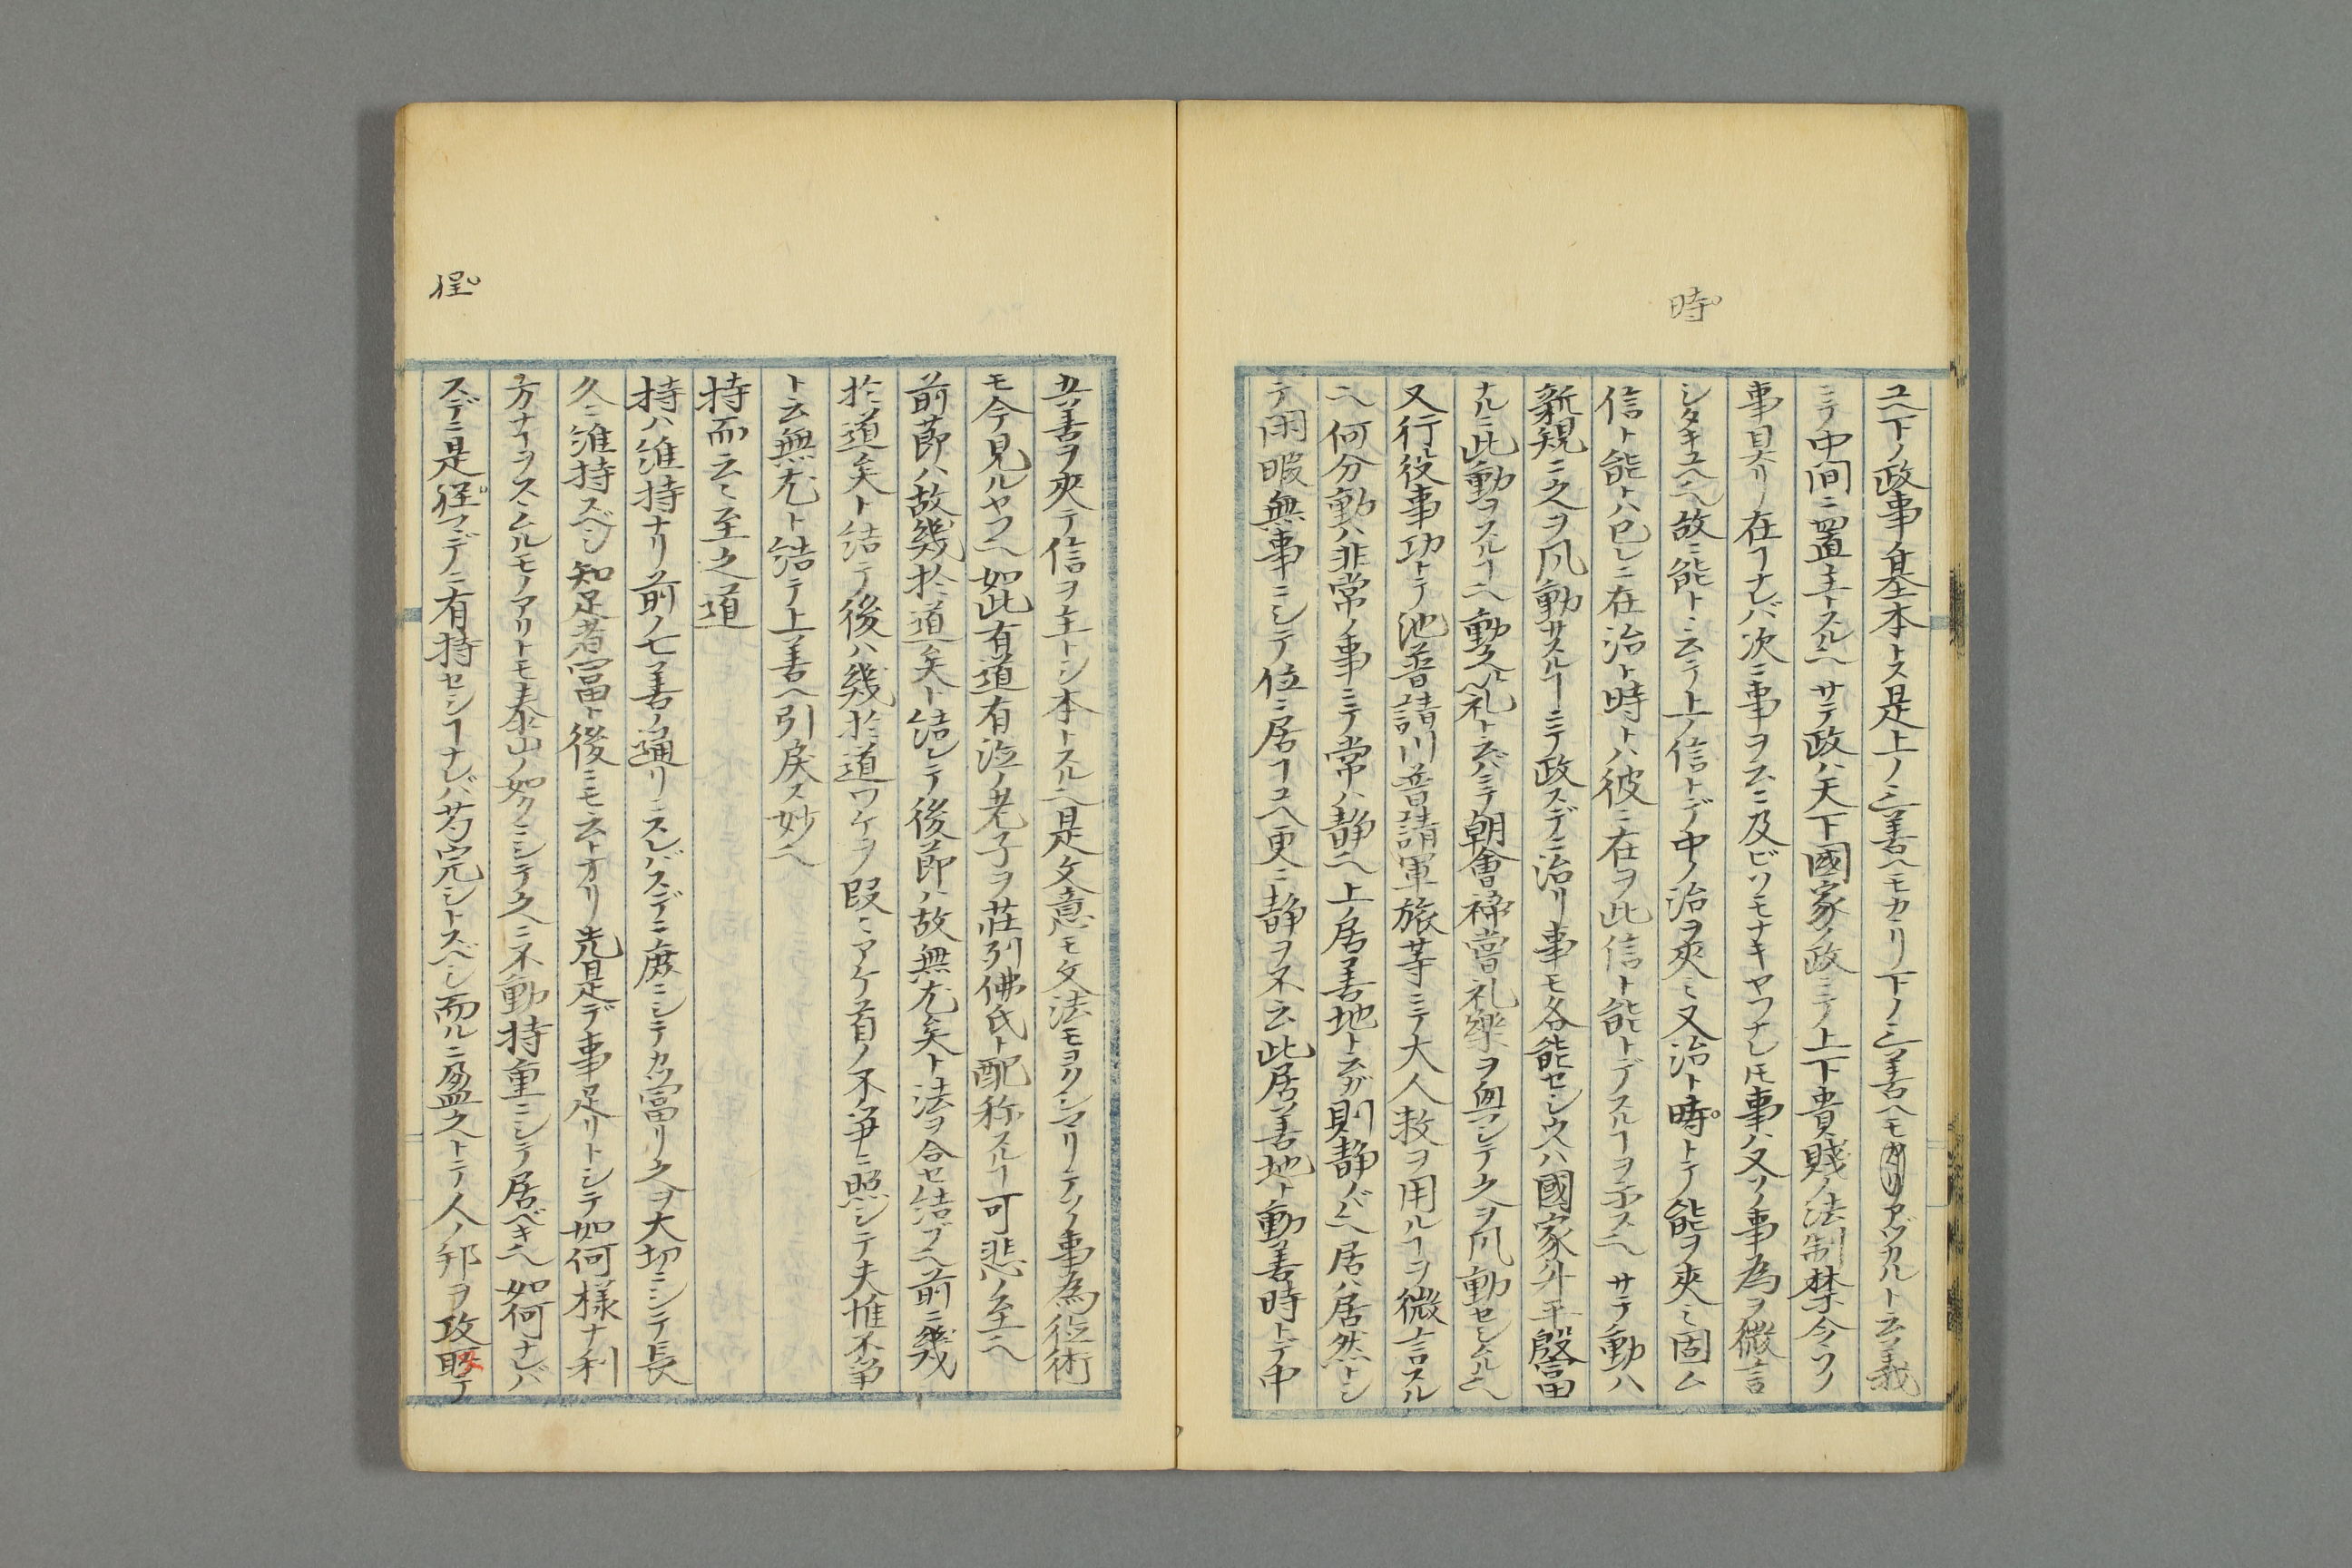 時
ユヘ下ノ政事ノ自基本トス是上ノ三善ヘモカヽリ下ノ三善ヘモカヽリアヅカルト云義
ニテ中間ニ置主トスル也サテ政ハ天下國家ノ政ニテ上下貴賤ノ法制禁令ソノ
事具リ在ヿナレバ次ニ事ヲ云ニ及ビソモナキヤウナレ𪜈事ハ又ソノ事為ヲ微言
シタキユヘ也故ニ能ト云テ上ノ信トデ中ノ治ヲ夾ミ又治ト時トテ能ヲ夾ミ固ム
信ト能トハ已レニ在治ト時トハ彼ニ在ヲ此信ト能トデスルヿヲ示ス也サテ動ハ
新規ニ之ヲ風動サスルヿニテ政スデニ治リ事モ各能セシウヘハ國家升平殷富
ナルニ此動ヲスルヿ也動之以礼ト云バニテ朝會禘嘗礼樂ヲ興シテ之ヲ風動セシムル也
又行役事功トテ池普請川普請軍旅等ニテ大人数ヲ用ルヿヲ微言スル
也何分動ハ非常ノ事ニテ常ハ静也上ノ居善地ト云ガ則静ノバ也居ハ居然トシ
テ閑暇無事ニシテ位ニ居ヿユヘ更ニ静ヲ不云此居善地ト動善時トデ中
五善ヲ夾テ信ヲ主トシ本トスル也是文意モ文法モヨクシマリテソノ事為従術
モ今見ルヤウ也如此有道有流ノ老子ヲ莊列佛氏ト配称スルヿ可悲ノ至也
前節ハ故幾於道矣ト結シテ後節ハ故無尤矣ト法ヲ合セ結ブ也前ニ幾
於道矣ト結テ後ハ幾於道ワケヲ段々アケ首ノ不争ニ照シテ夫惟不争
ト云無尤ト結テ上善ヘ引戻ス妙也
持而云々至之道
持ハ維持ナリ前ノ七善ノ通リニスレバスデニ庶ニシテカツ富リ之ヲ大切ニシテ長
久ニ維持スベシ知足者富ト後ニモ云トオリ先是デ事足リトシテ如何様ナ利
方ナヿヲスヽムルモノアリトモ泰山ノ如クニシテ久ニ不動持重ニシテ居ベキ也如何ナレバ
スデニ是程マデノニ有持セシヿナレバ苟完シトスベシ而ルニ盈之トテ人ノ邦ヲ攻取テ
程